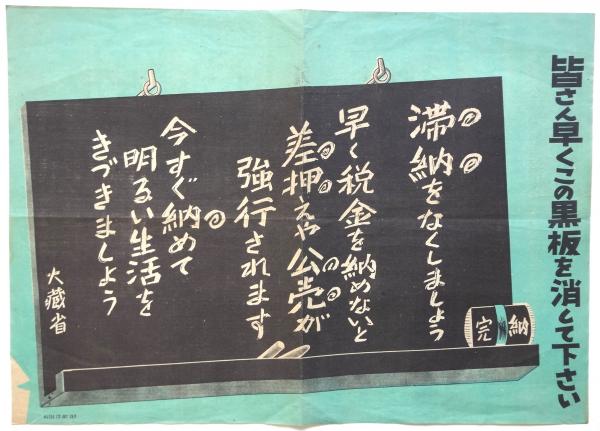 皆さん早くこの黒板を消して下さい
滞納をなくしましょう
早く税金を納めないと
差押えや公売が
強行されます
今すぐ納めて
明るい生活を
きづきましよう
大藏省
完納